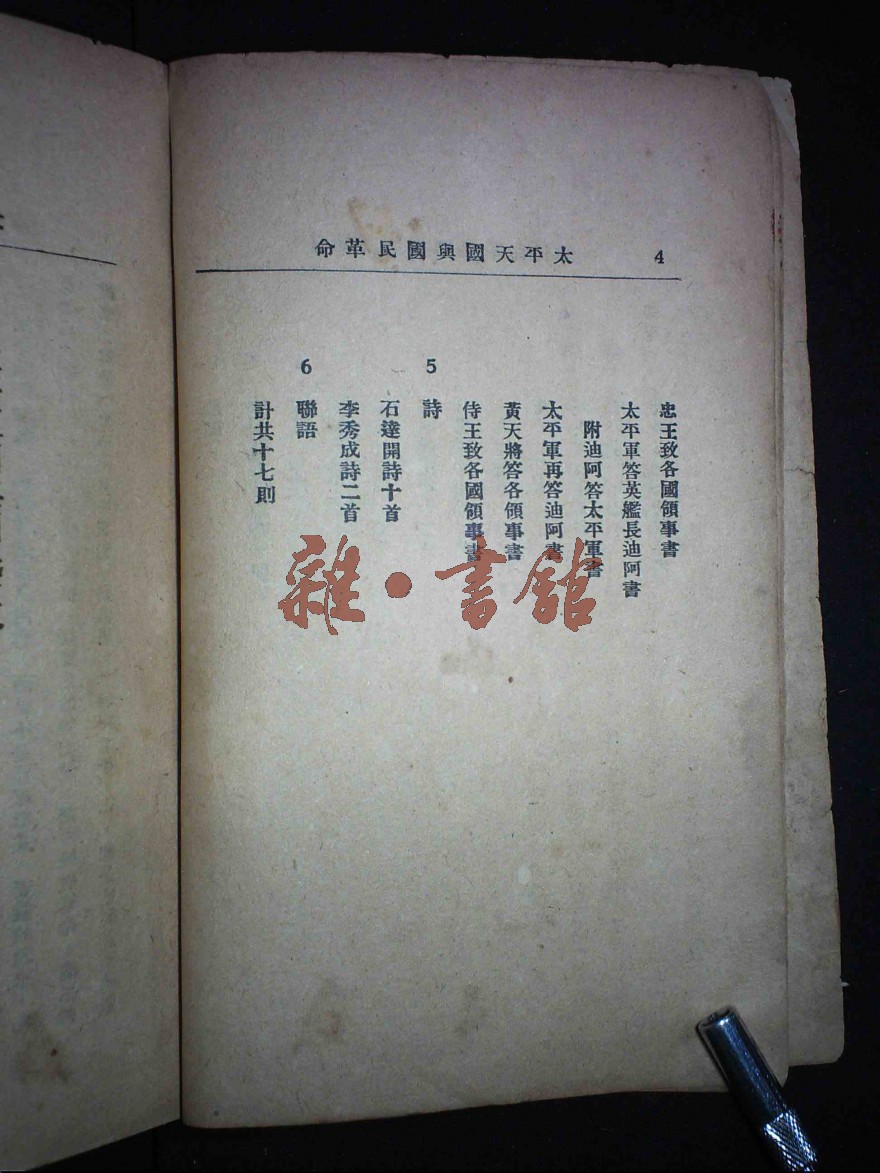 太平天國與國民革命
4
忠王致各國領事書
太平軍答英艦長迪阿書
附迪阿答太平軍書
太平軍再答迪阿書
黃天將答各領事書
侍王致各國領事書
5
詩
石達開詩十首
李秀成詩二首
6
聯語
計共十七則
雜·書館